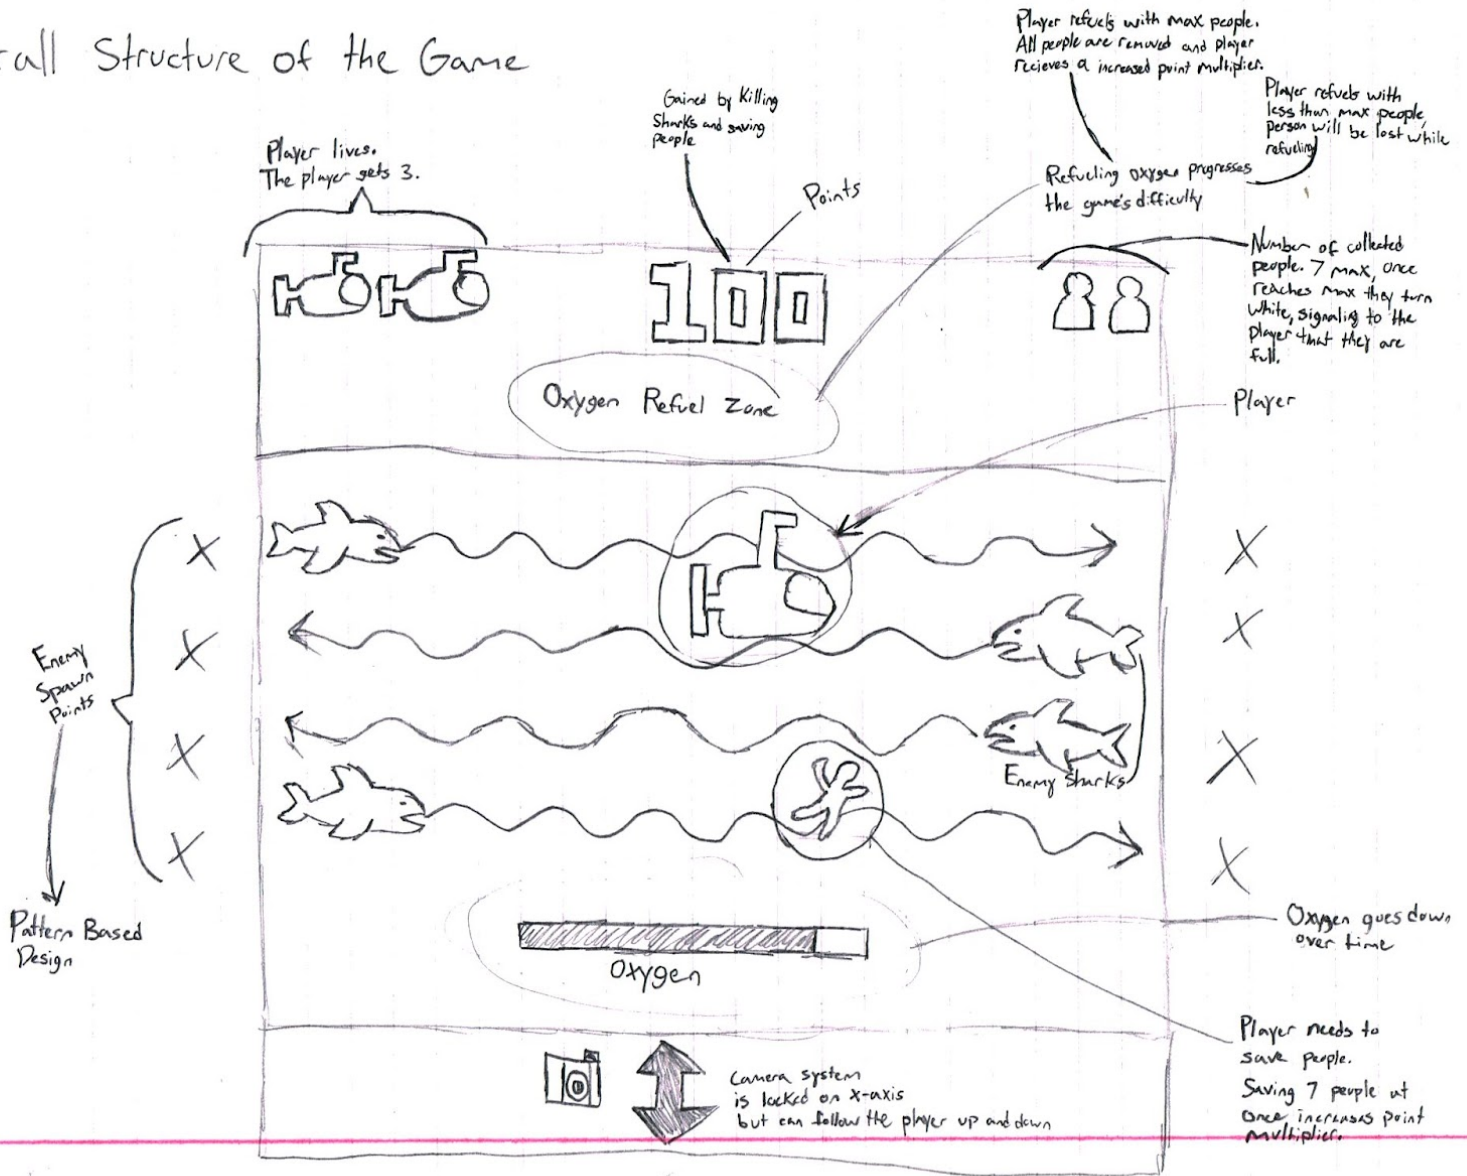 all Structure of the Game
Player refuels with max people.
All people are removed and player
recieves a increased point multiplier.
Player refuels with
less than max people,
person will be lost while
refueling
Gained by Killing
Sharks and saving
people
Player lives.
The player gets 3.
Points
Refueling oxygen progresses
the game's difficulty
Number of collected
people. 7 max, once
reaches max they turn
white, signaling to the
player that they are
full.
100
Oxygen Refuel Zone
Player
X
X
X
X
Enemy
Spawn
Points
X
X
X
X
Enemy Sharks
Pattern Based
Design
Oxygen
Oxygen goes down
over time
Player needs to
save people.
Saving 7 people at
once increases point
multiplier.
Camera system
is locked on x-axis
but can follow the player up and down